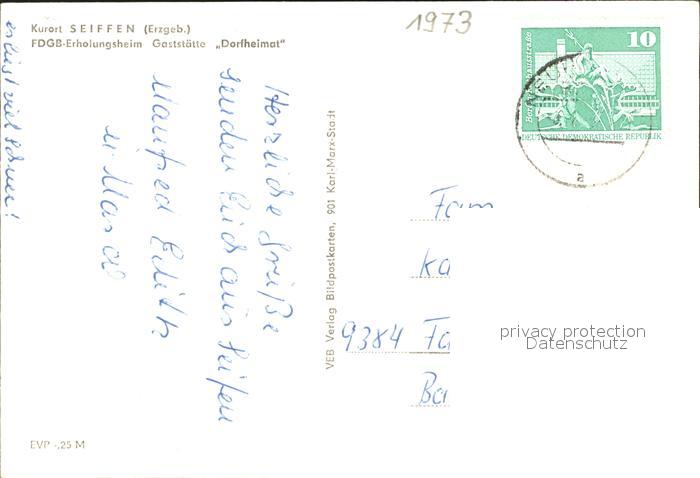 Kurort SEIFFEN (Erzgeb.)
FDGB-Erholungsheim Gaststätte „Dorfheimat"
1973
10
DEUTSCHE DEMOKRATISCHE REPUBLIK
a
es liegt viel Schnee!
Herzliche Grüße
senden Euch aus Seifen
Manfred Edith
u.
VEB Verlag Bildpostkarten, 901 Karl-Marx-Stadt
Fam
Ka
9384 Fa
Ba
privacy protection
Datenschutz
EVP -,25 M